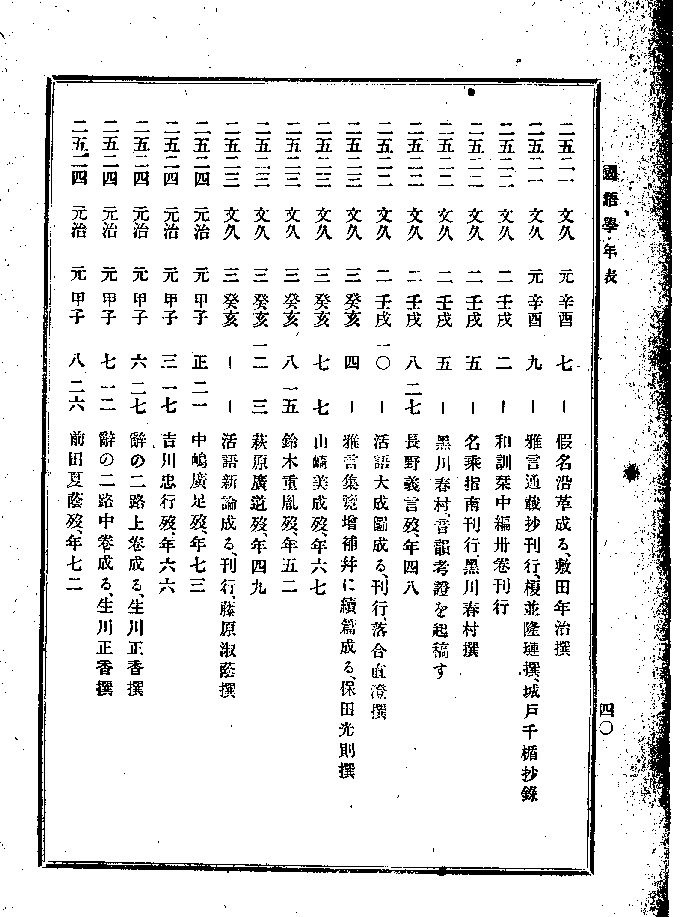 國語學年表
四〇
二五二一 文久 元 辛酉 七 ー 假名沿革成る、敷田年治撰
二五二一 文久 元 辛酉 九 ー 雅言通載抄刊行、榎並隆璉撰、城戸千楯抄錄
二五二二 文久 二 壬戌 二 ー 和訓栞中編卅卷刊行
二五二二 文久 二 壬戌 五 ー 名乘指南刊行、黑川春村撰
二五二二 文久 二 壬戌 五 ー 黑川春村、音韻考證を起稿す
二五二二 文久 二 壬戌 八 二七 長野義言歿、年四八
二五二二 文久 二 壬戌 一〇 ー 活語大成圖成る、刊行落合直澄撰
二五二三 文久 三 癸亥 四 ー 雅言集覽增補幷に續篇成る、保田光則撰
二五二三 文久 三 癸亥 七 七 山崎美成歿、年六七
二五二三 文久 三 癸亥 八 一五 鈴木重胤歿、年五二
二五二三 文久 三 癸亥 一二 三 萩原廣道歿、年四九
二五二三 文久 三 癸亥 ー ー 活語新論成る、刊行、藤原淑蔭撰
二五二四 元治 元 甲子 正 二一 中嶋廣足歿、年七三
二五二四 元治 元 甲子 三 一七 吉川忠行歿、年六六
二五二四 元治 元 甲子 六 二七 辭の二路上卷成る、生川正香撰
二五二四 元治 元 甲子 七 一二 辭の二路中卷成る、生川正香撰
二五二四 元治 元 甲子 八 二六 前田夏蔭歿、年七二